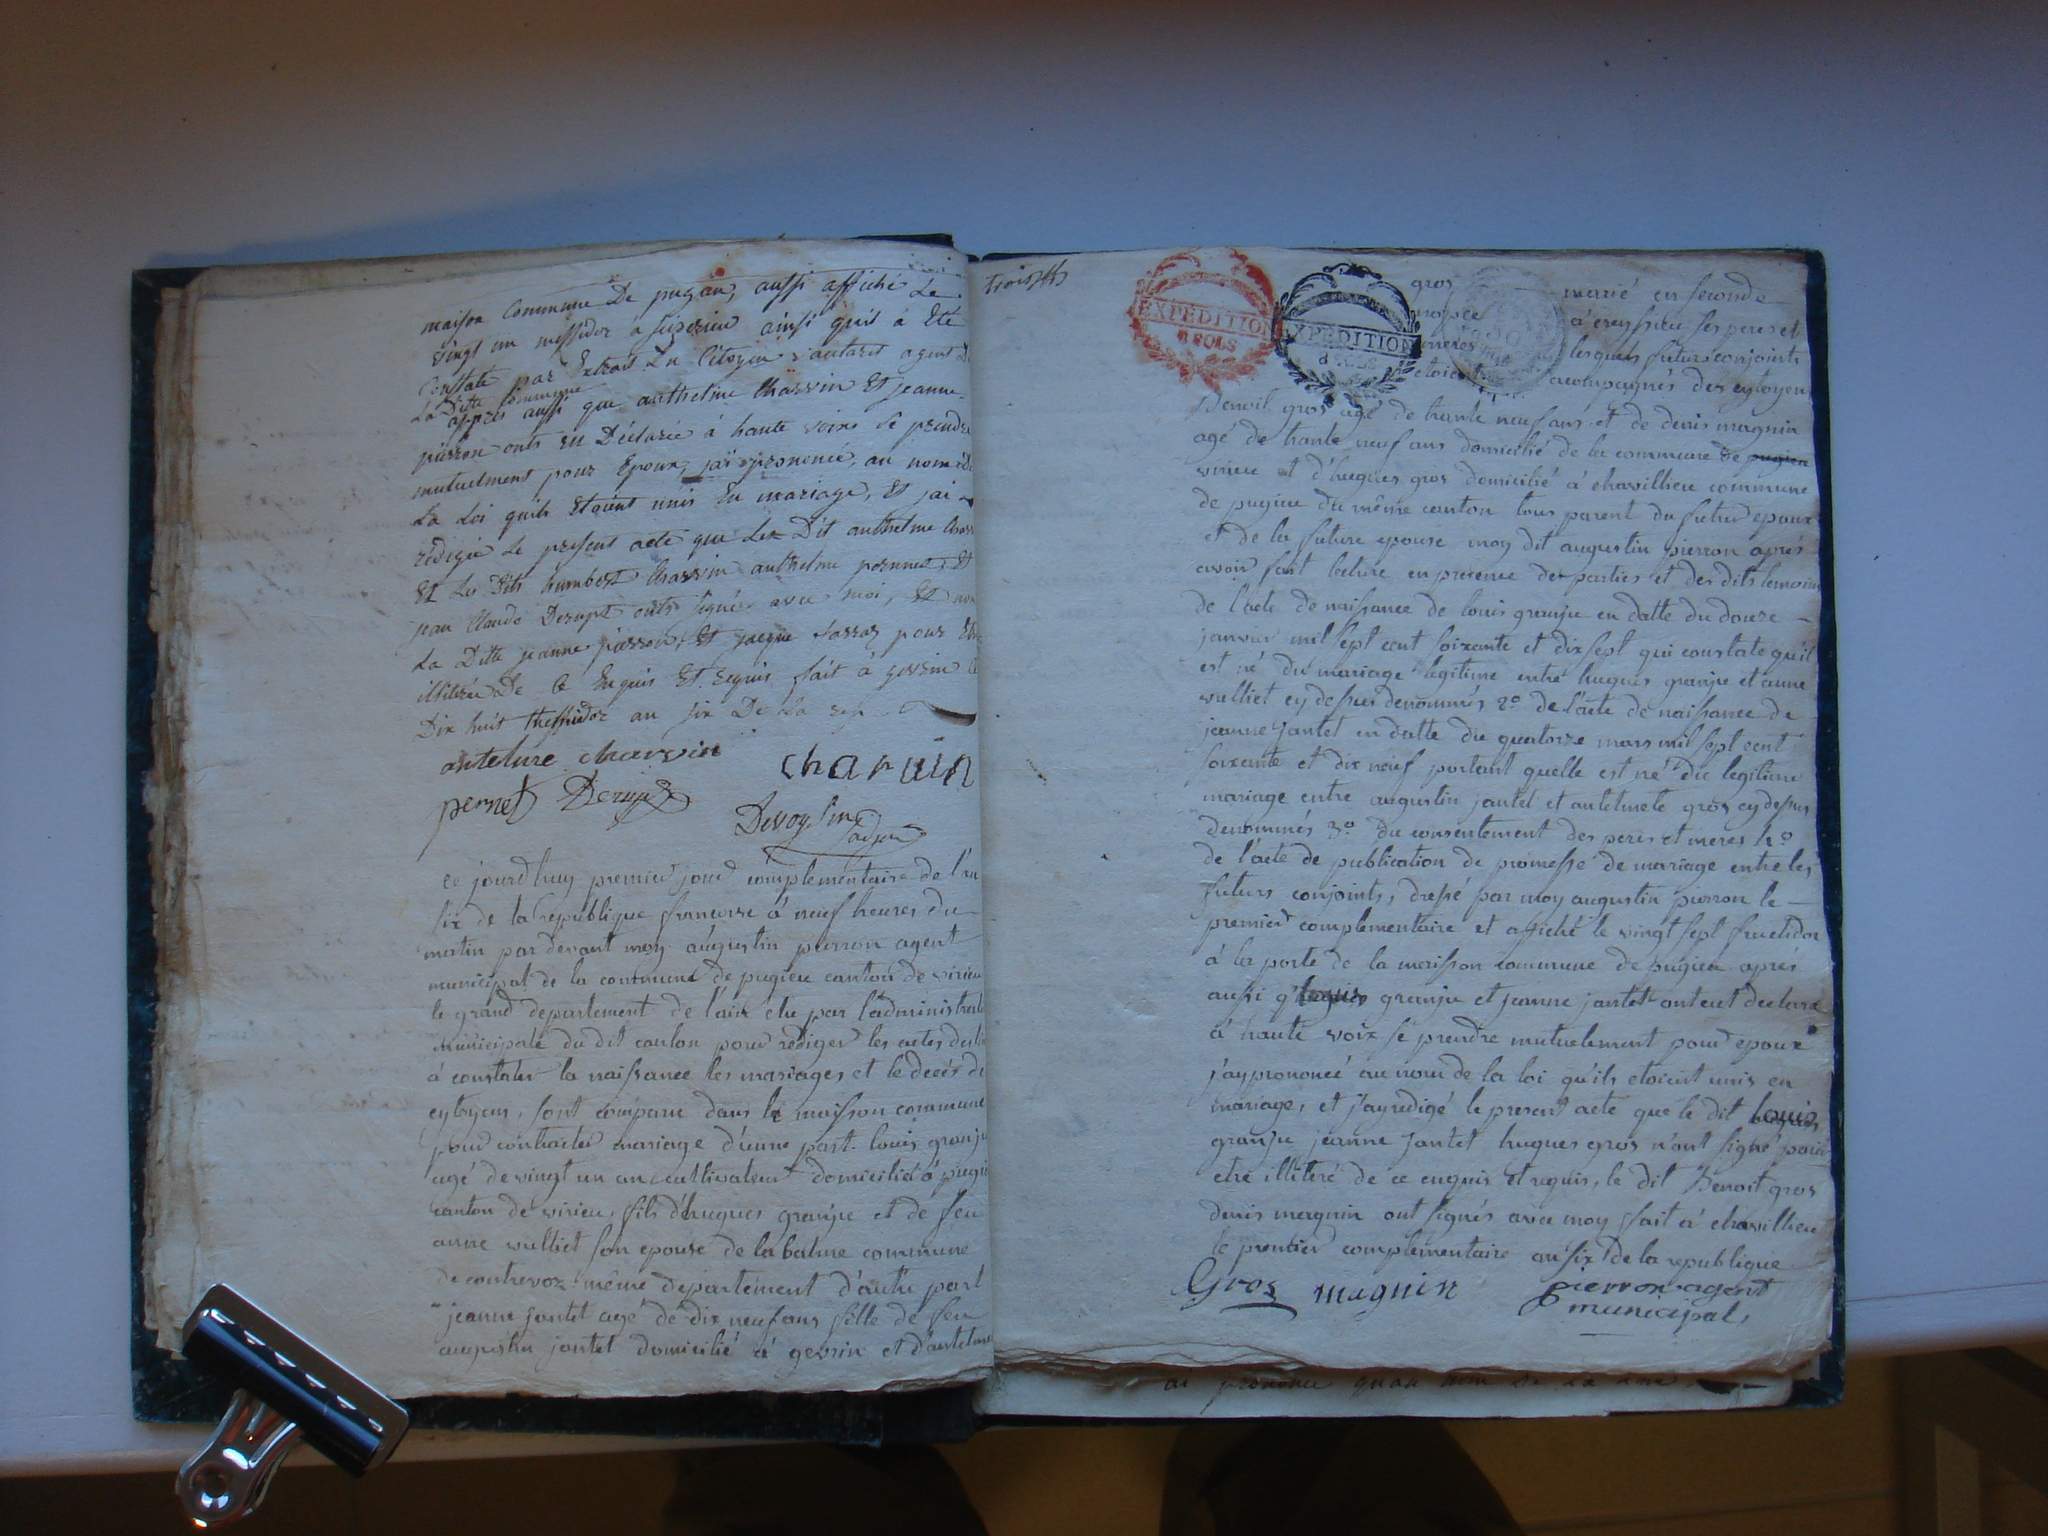 maison Commune De pugieu, aussi affiché Le
vingt un messidor à ainsi quil à Eté
Constaté par Extrait Du Citoyen agent
La Ditte Commune
apprès aussi que anthelme Charvin Et jeanne
pierron onts eu Déclarée à haute voix Se prendre
mutuelment pour Epoux, jaï prononcé, au nom de
La Loi quils Etoient unis En mariage, Et jai
rédigé Le present acte que Les Dit anthelme Charvin
Et Les Dits humbert Charvin anthelme pernnet, Et
jean Claude onts signés avec moi, Et non
La Ditte jeanne pierron, Et jacque pour Etre
illitéré De Ce Enquis Et Requis fait à
Dix huit thermidor an six De La rep
antelme charvin
charvin
pernet
ce jourd'huy premier jour complementaire de l'an
six de la republique francoise à neuf heures du
matin par devant moy augustin pierron agent
municipal de la commune de pugieu canton de virieu
le grand departement de l'ain elu par l'administration
municipale du dit canton pour rediger les actes destinés
à constater la naissance les mariages et le decés des
cytoyens, sont comparu dans la maisson commune
pour contracter mariage d'une part louis granju
agé de vingt un an cultivateur domicilié à pugieu
canton de virieu, fils d'hugues granju et de feu
anne vulliet son epouse de la balme commune
de contrevoz même departement d'autre part
jeanne jantet agé de dix neuf ans fille de feu
augustin jantet domicilié à gevrin et d'antelmete
trois
EXPÉDITION
8 SOLS
EXPÉDITION
gros marié en seconde
nopce à ceyssieu ses peres et
meres lesquels futurs conjoints
etoient acompagnés des cytoyens
Benoit gros agé de trante neuf ans et de denis magnin
agé de trante neuf ans domicilié de la commune de pugieu
virieu et d'hugues gros domicilié à chavillieu commune
de pugieu du même canton tous parent du futur epoux
et de la future epouse moy dit augustin pierron aprés
avoir fait lecture en presence des parties et des dits temoins
de l'acte de naissance de louis granju en datte du douze
janvier mil sept cent soixante et dix sept qui constate qu'il
est né du mariage legitime entre hugues granju et anne
vulliet cy dessus denommés 2º de l'acte de naissance de
jeanne jantet en datte du quatorze mars mil sept cent
soixante et dix neuf portant quelle est né du legitime
mariage entre augustin jantet et antelmete gros cy dessus
denommés 3º du consentement des peres et meres 4º
de l'acte de publication de promesse de mariage entre les
futurs conjoints, dressé par moy augustin pierron le
premier complementaire et affiché le vingt sept fructidor
à la porte de la maisson commune de pugieu aprés
aussi q' louis granju et jeanne jantet ont eut declaré
à haute voix se prendre mutuelement pour epoux
j'ay prononcé au nom de la loi qu'ils etoient unis en
mariage, et j'ay redigé le present acte que le dit louis
granju jeanne jantet hugues gros n'ont signé pour
etre illiteré de ce enquis et requis, le dit Benoit gros
denis magnin ont signés avec moy fait à chavillieu
le premier complementaire an six de la republique
Gros magnin pierron agent
municipal
ai prononcé quau nom De La Loi